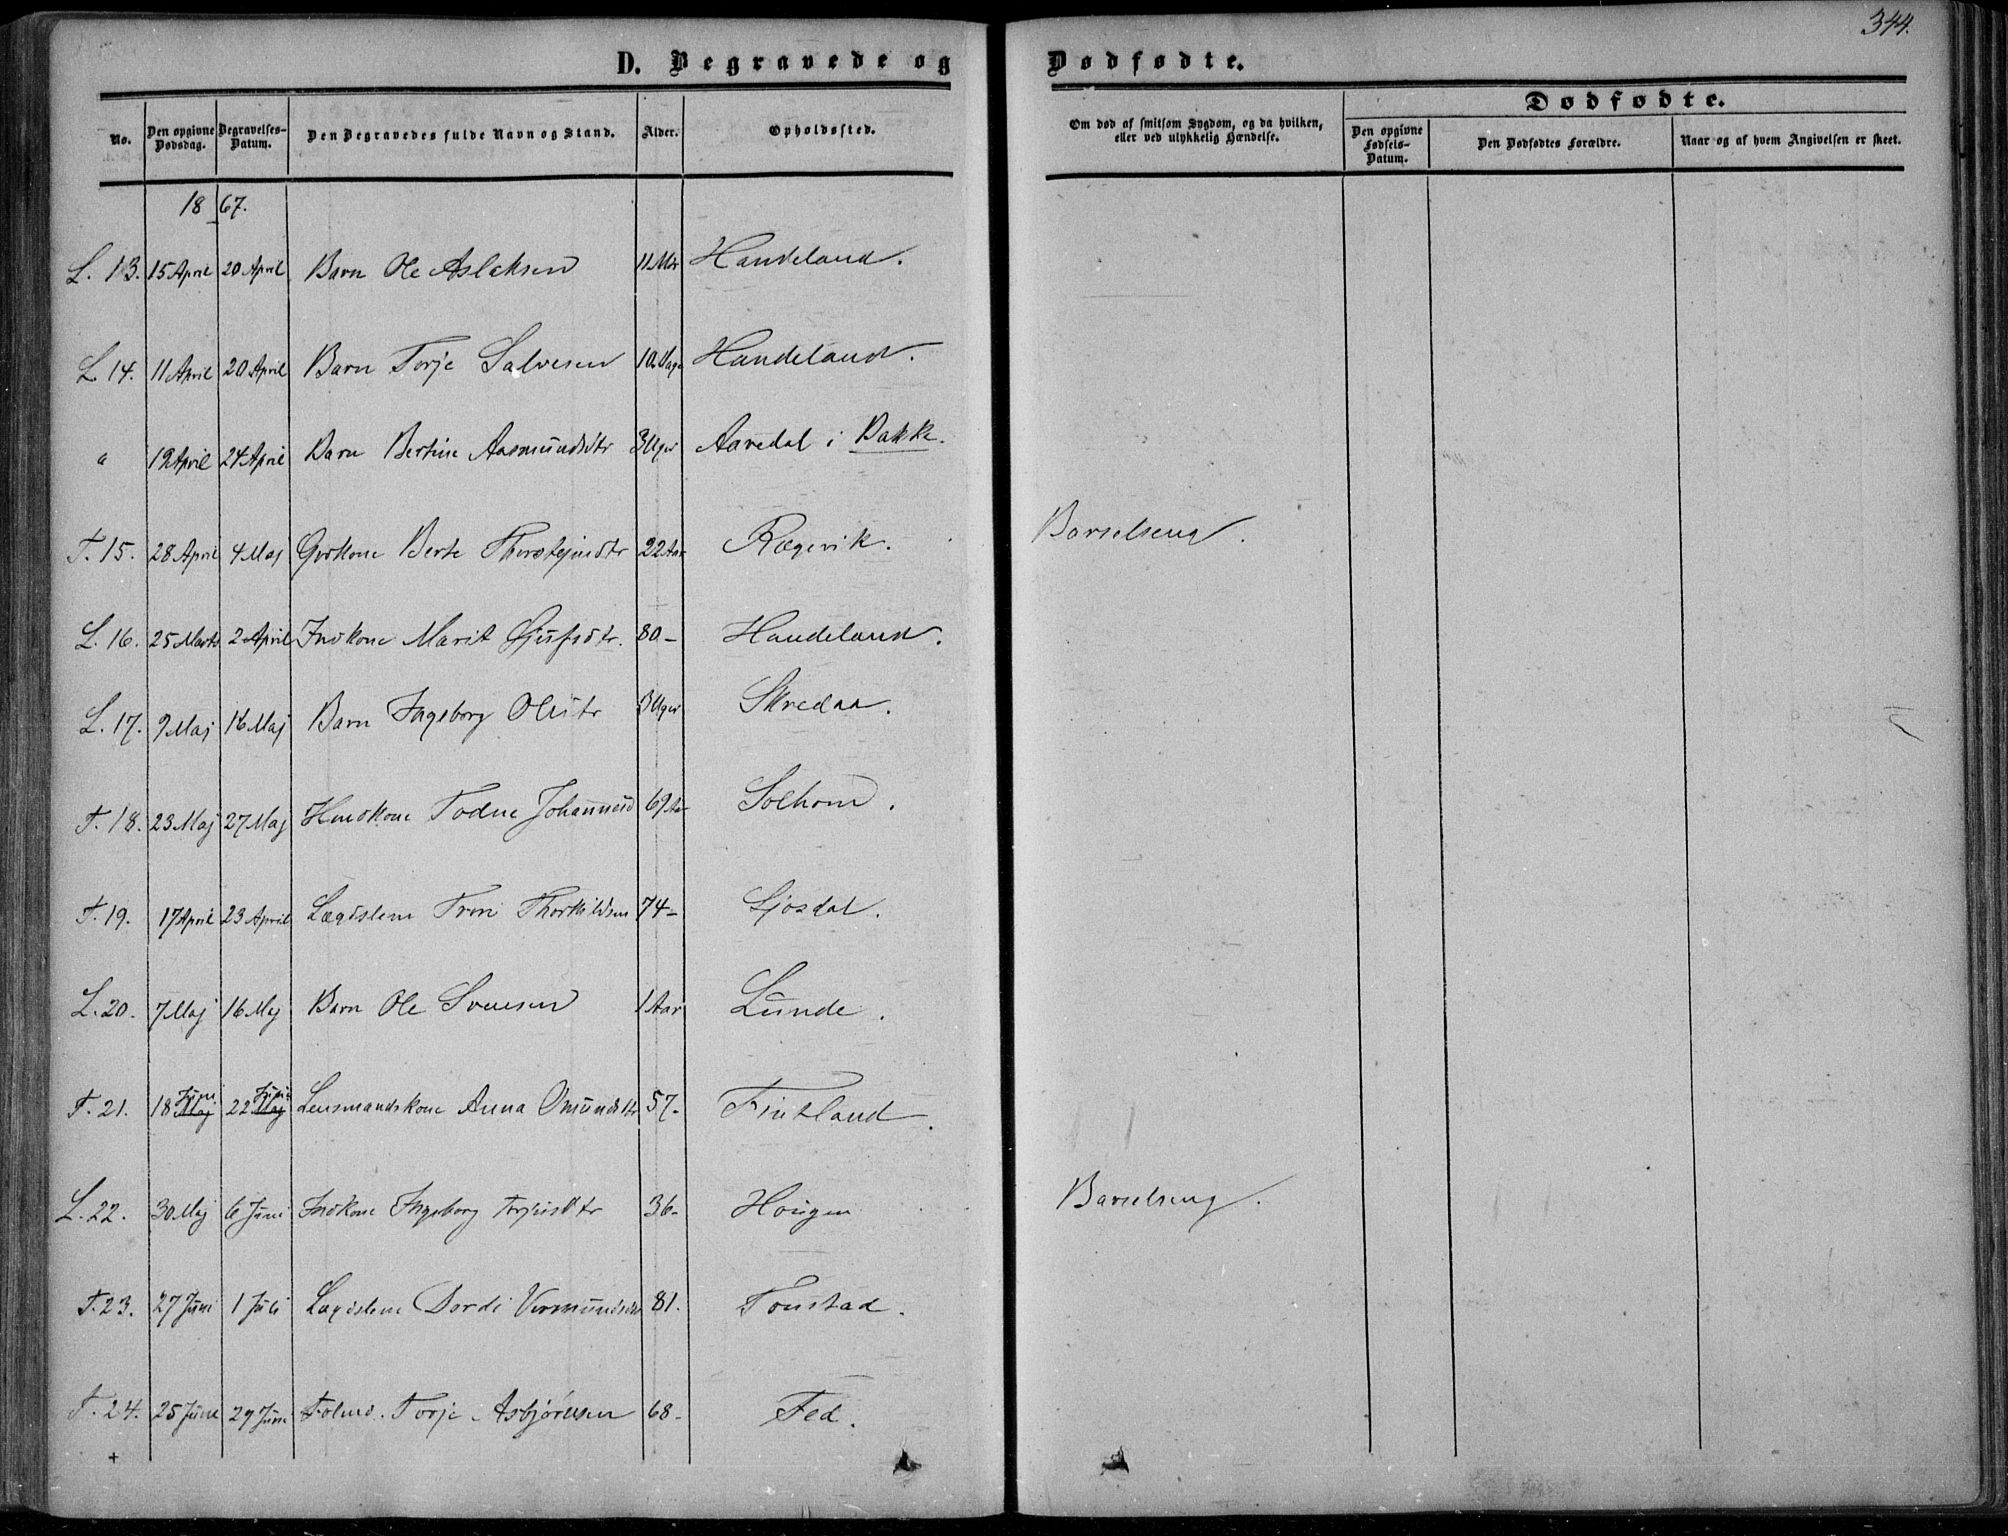 344.
D. Begravede og Dødfødte.
No. Den opgivne Dødsdag. Begravelses-Datum. Den Begravedes fulde Navn og Stand. Alder. Opholdssted. Om død af smitsom Sygdom, og da hvilken, eller ved ulykkelig Hændelse. Dødfødte. Den opgivne Fødsels-Datum. Den Dødfødtes Forældre. Naar og af hvem Angivelsen er skeet.
1867.
L. 13. 15 April 20 April Barn Ole Aslaksen 11 Mdr Handeland.
L. 14. 11 April 20 April Barn Torje Salvesen 10 Dage Handeland.
" 19 April 24 April Barn Bertine Aasmundsdtr 3 Uger Aavedal i Bakke.
T. 15. 28 April 4 Maj Grdkone Berte Thorsteinsdtr 22 Aar Rægevik. Barselseng.
L. 16. 25 Marts 2 April Indkone Marit Gjufsdtr. 80 - Handeland.
L. 17. 9 Maj 16 Maj Barn Ingeborg Olsdtr 3 Uger Skredaa.
T. 18. 23 Maj 27 Maj Huuskone Todne Johannesd 69 Aar Solhom.
T. 19. 17 April 23 April Lægdslem Tron Thorkildsen 74 - Ljosdal.
L. 20. 7 Maj 16 Maj Barn Ole Svensen 1 Aar Lunde.
T. 21. 18 Juni Maj 22 Juni Maj Lensmandskone Anna Omundsdtr 57 - Fintland.
L. 22. 30 Maj 6 Juni Indkone Ingeborg Torjusdtr 36 - Hougen Barselseng.
T. 23. 27 Juni 1 Juli Lægdslem Dordi Vermundsdtr 81. Tonstad.
T. 24. 25 Juni 29 Juni Torje Asbjørnsen 68 - Fed.
+